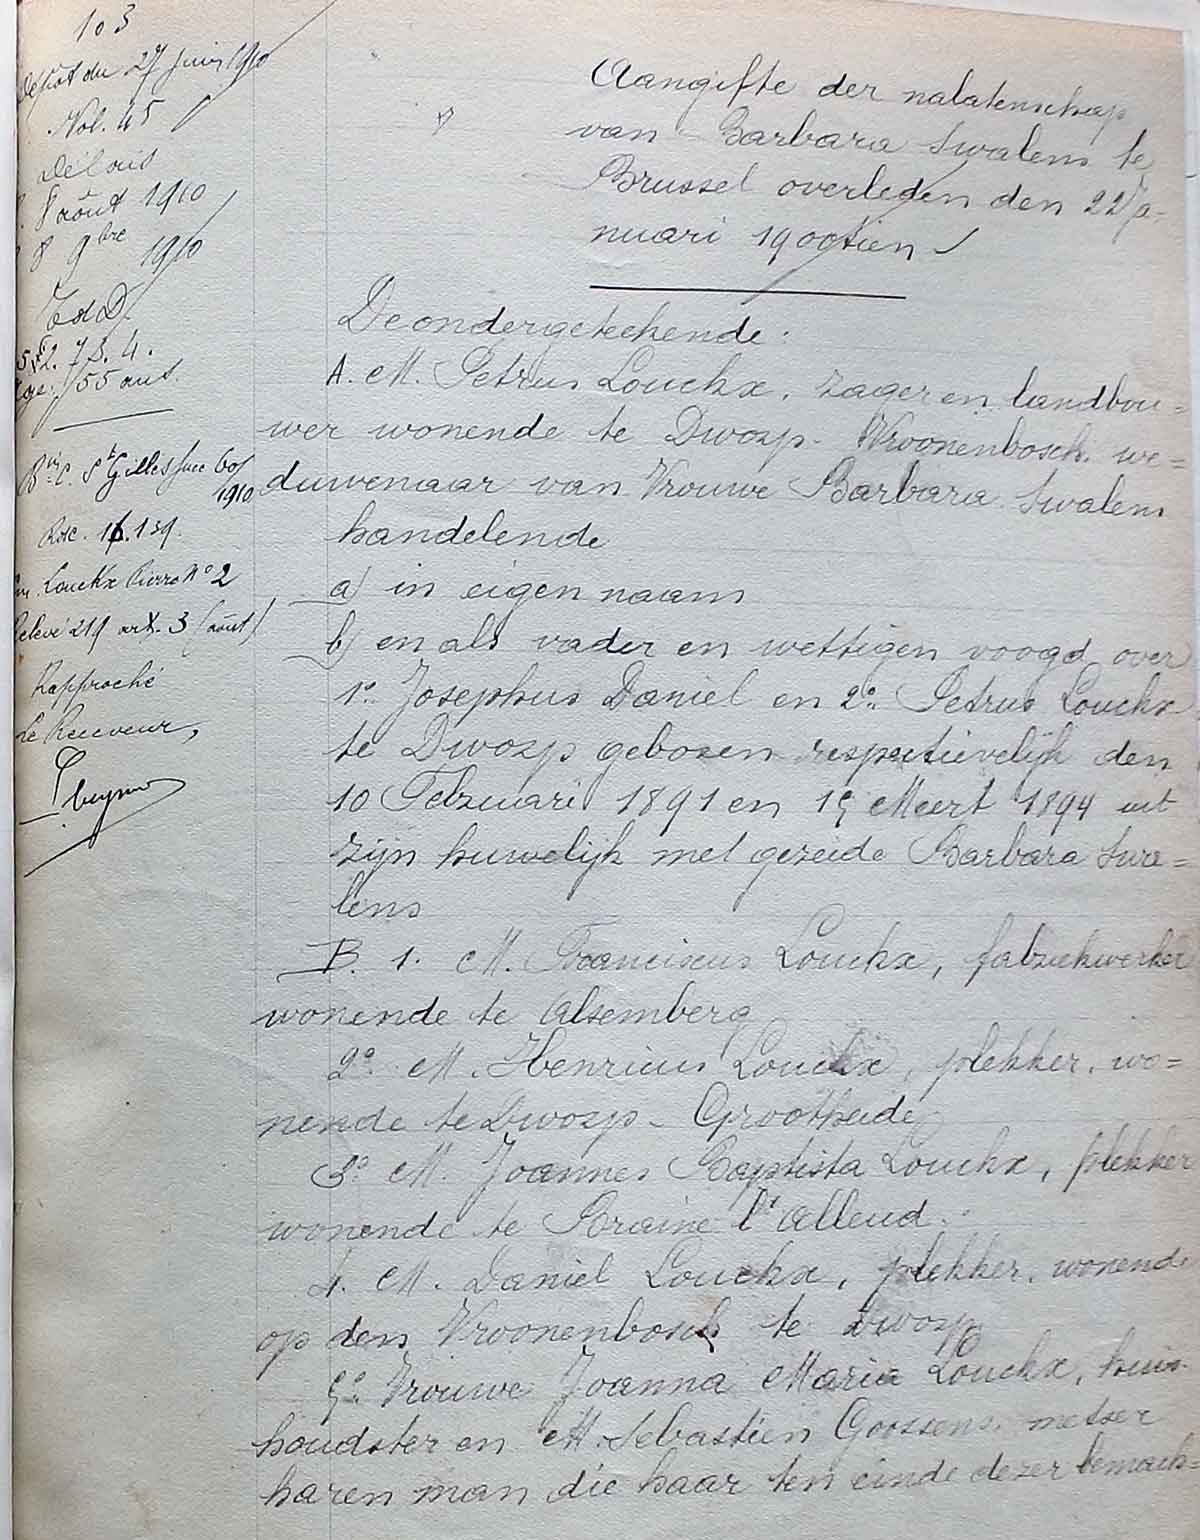 103
Dépôt du 27 juin 1910
Vol. 45
Délais
8 août 1910
8 9bre 1910
T d D.
52. 78. 4.
age: 55 ans.
Bin C. St Gilles succ 601
1910
Rec. 16.139.
Louckx Pierre No 2
Relevé 219 art. 3 (août)
Rapproché
Le Receveur,
Aangifte der nalatenschap
van Barbara Swalens te
Brussel overleden den 22 Ja-
nuari 1900tien
De ondergeteekende:
A. M. Petrus Louckx, zager en landbou=
wer wonende te Dworp- Vroonenbosch, we=
duwenaar van Vrouwe Barbara Swalens
handelende
a) in eigen naam
b) en als vader en wettigen voogd over
1o Josephus Daniel en 2o Petrus Louckx
te Dworp geboren respectievelijk den
10 Februari 1891 en 15 Meert 1894 uit
zijn huwelijk met gezeide Barbara Swa=
lens
B. 1. M. Franciscus Louckx, fabriekwerker
wonende te Alsemberg
2o M. Henricus Louckx, plekker, wo=
nende te Dworp- Grootheide
3o M. Joannes Baptista Louckx, plekker
wonende te Braine l'Alleud.
4. M. Daniel Louckx, plekker, wonende
op den Vroonenbosch te Dworp
5o Vrouwe Joanna Maria Louckx, huis-
houdster en M. Sebastien Goossens, metser
haren man die haar ten einde dezer bemach=